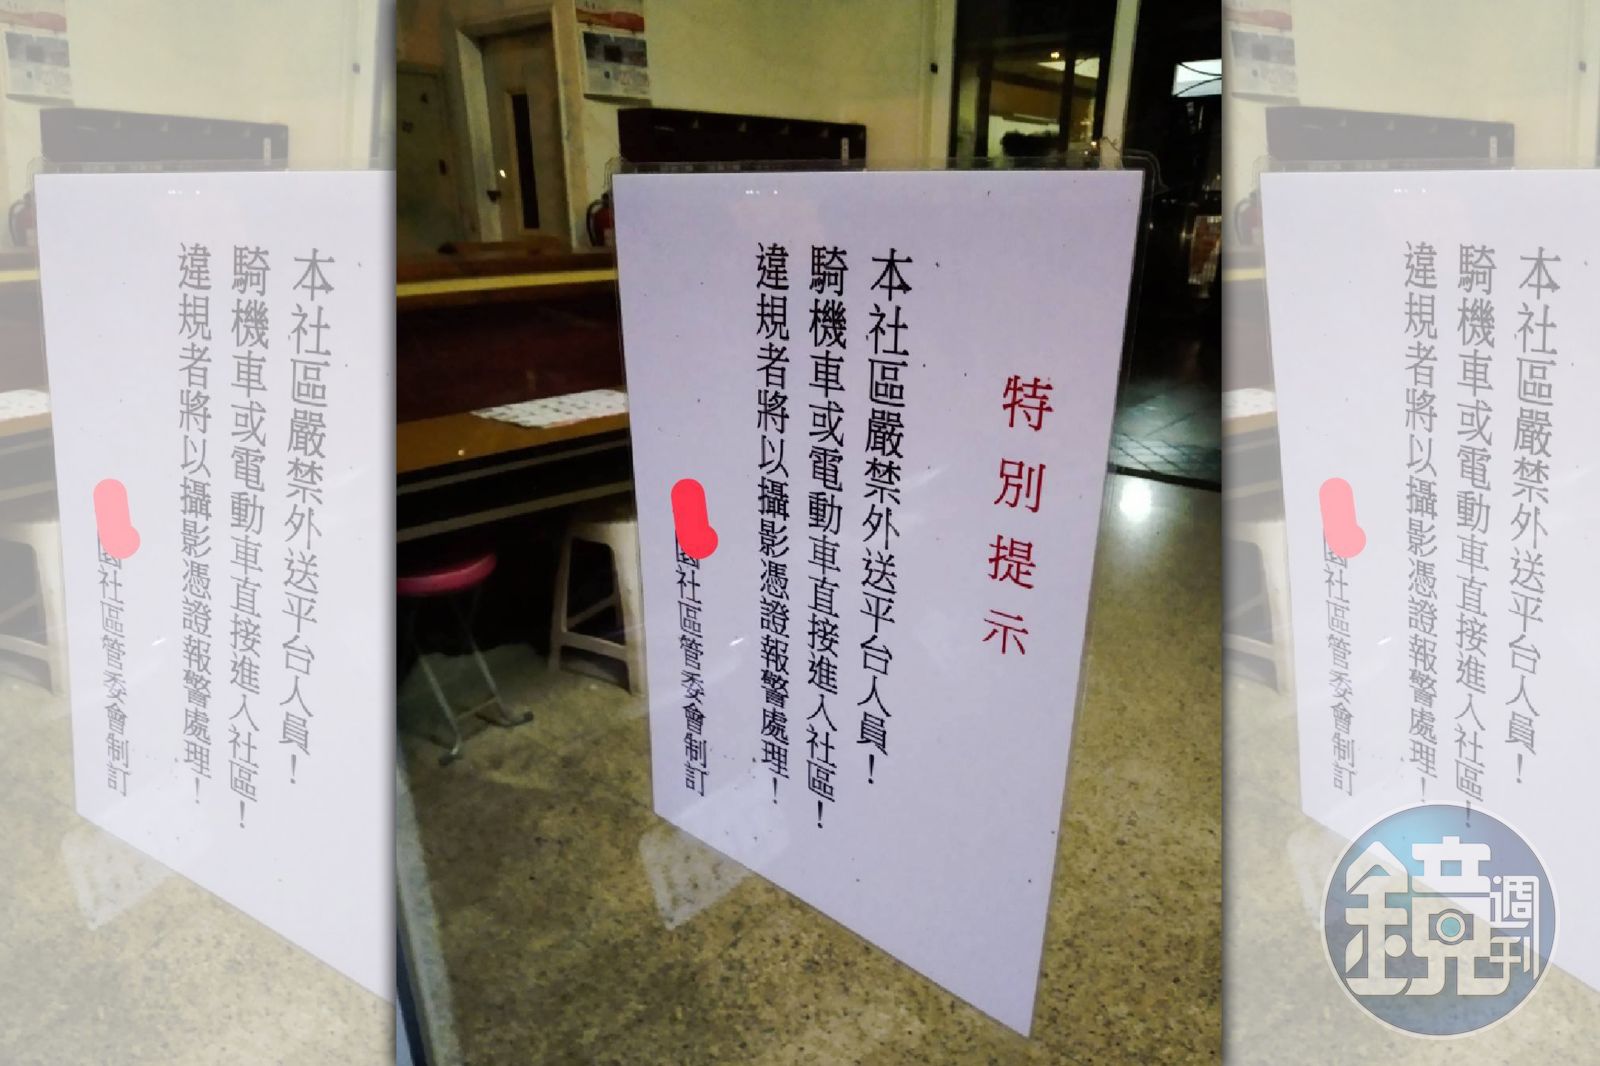 特別提示
本社區嚴禁外送平台人員！
騎機車或電動車直接進入社區！
違規者將以攝影憑證報警處理！
園社區管委會制訂
鏡週刊